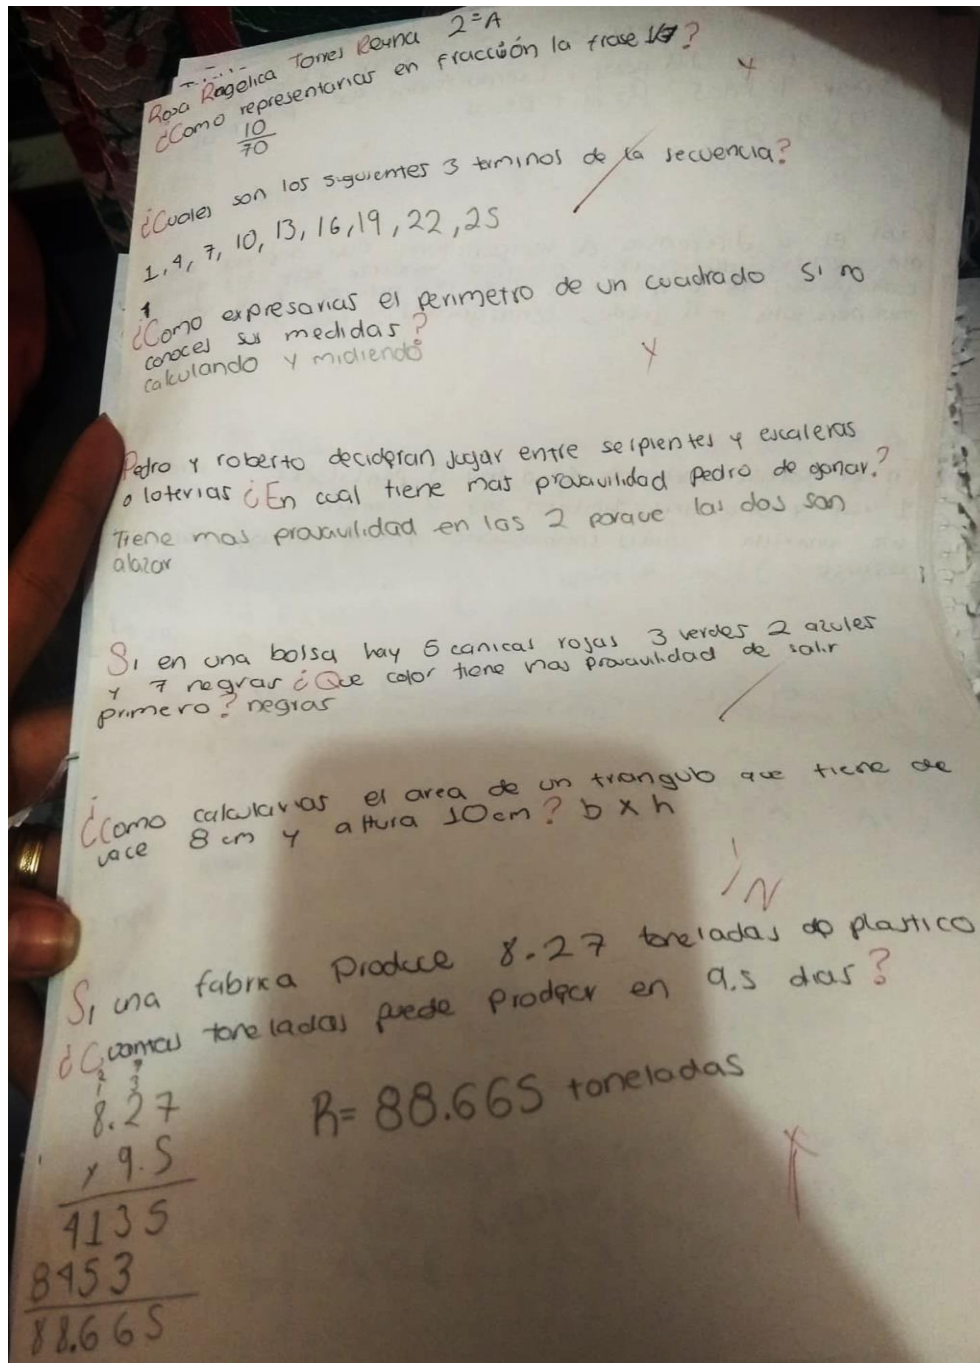 Rosa Angelica Torres Reyna 2=A
¿Como representarias en fracción la frase 1/7?
10
70
¿Cuales son los siguientes 3 terminos de la secuencia?
1, 4, 7, 10, 13, 16, 19, 22, 25
¿Como expresarias el perimetro de un cuadrado si no
conoces sus medidas?
calculando y midiendo
Pedro y roberto decidieran jugar entre serpientes y escaleras
o loterias ¿En cual tiene mas provavilidad Pedro de ganar?
Tiene mas provavilidad en las 2 porque las dos son
alazar
Si en una bolsa hay 5 canicas rojas 3 verdes 2 azules
y 7 negras ¿Que color tiene mas provavilidad de salir
primero? negras
¿Como calcularias el area de un triangulo que tiene de
vace 8 cm y altura 10cm? b x h
N
Si una fabrica Produce 8.27 toneladas de plastico
¿Cuantas toneladas puede Producir en 9.5 dias?
8.27
x 9.5
4135
8453
88.665
R= 88.665 toneladas